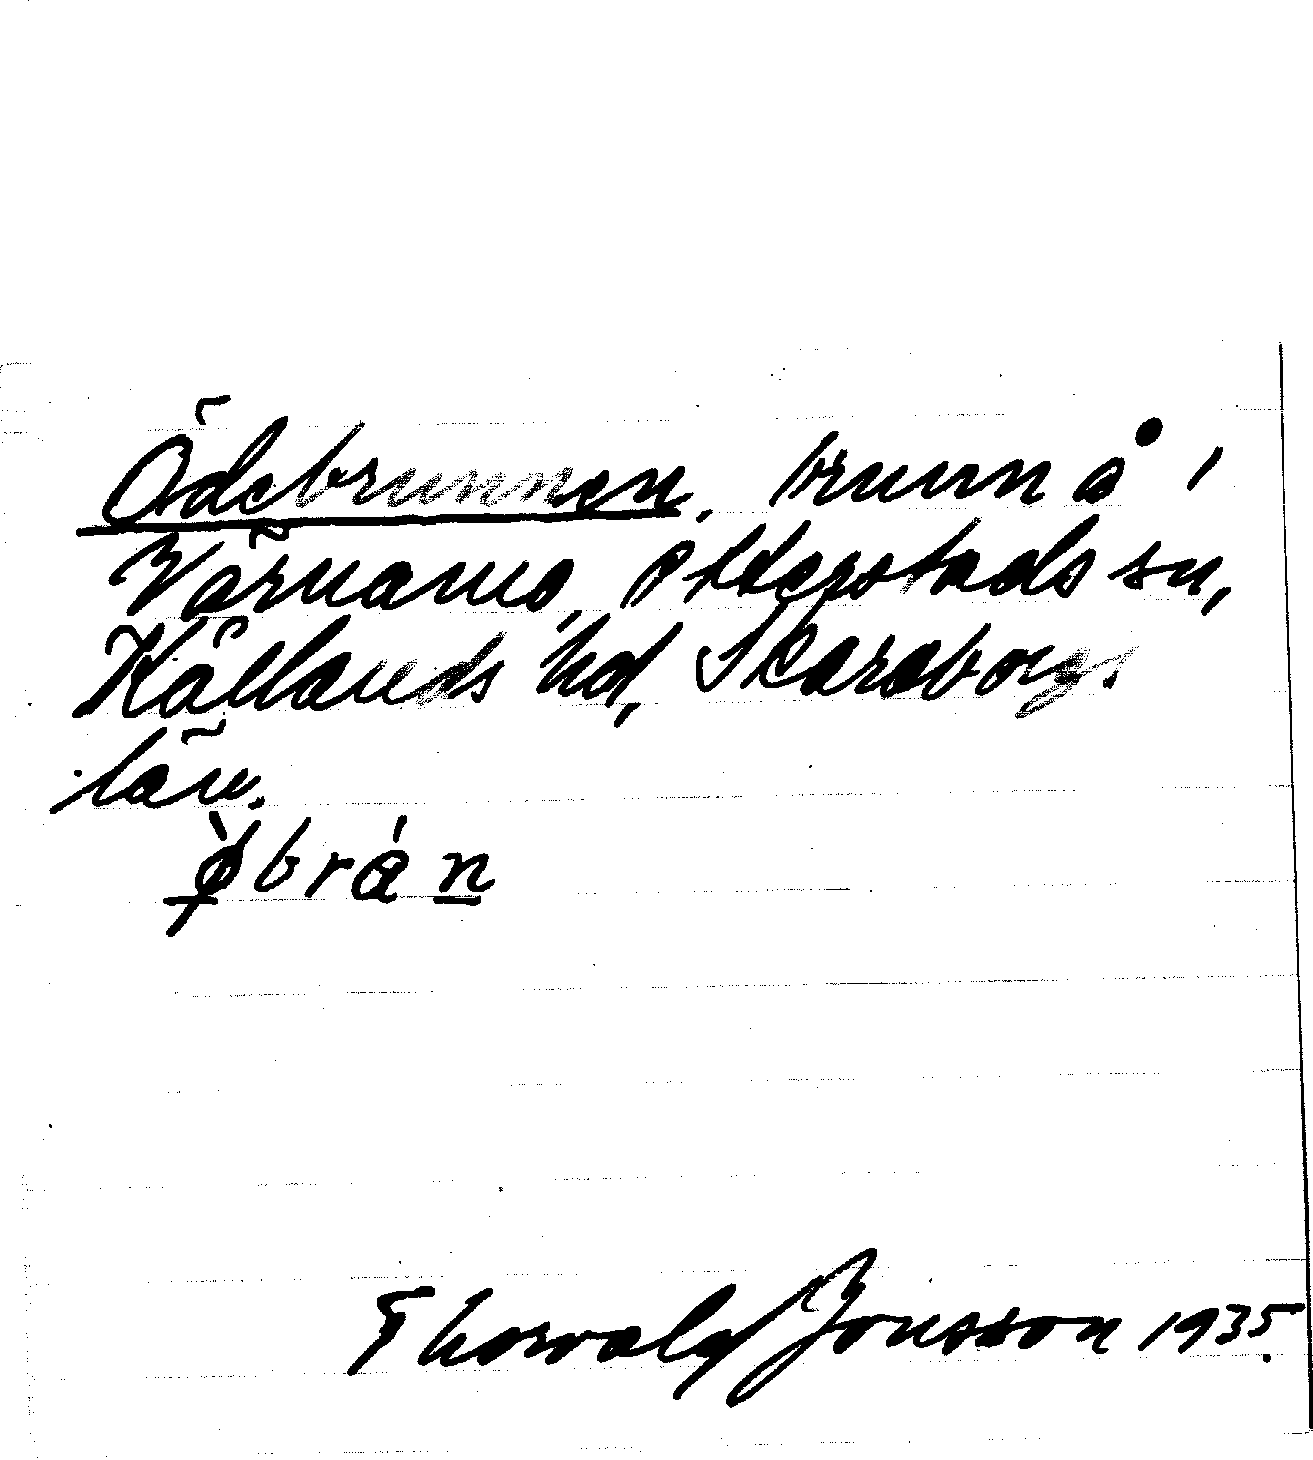 Ödebrunnen, brunn å
Värnamo, Otterstads sn,
Kållands hd, Skaraborgs
län.
Thorvald Jonsson 1935.